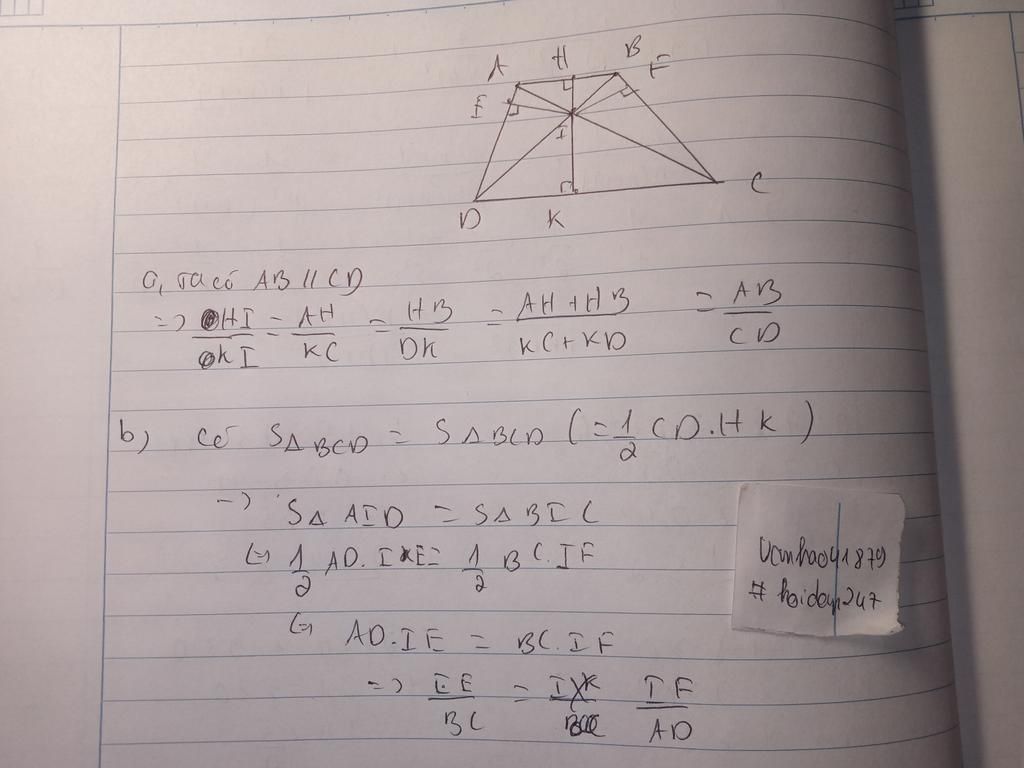 A H B F
E
I
D K C
a, ta có AB // CD
=> HI/KI = AH/KC = HB/DK = AH+HB/KC+KD = AB/CD
b) Có SΔBCD = SΔBCD (= 1/2 CD.HK)
=> SΔ AID = SΔ BIC
(=) 1/2 AD.IE = 1/2 BC.IF
(=) AD.IE = BC.IF
=> IE/BC = IF/AD
#hoidap247